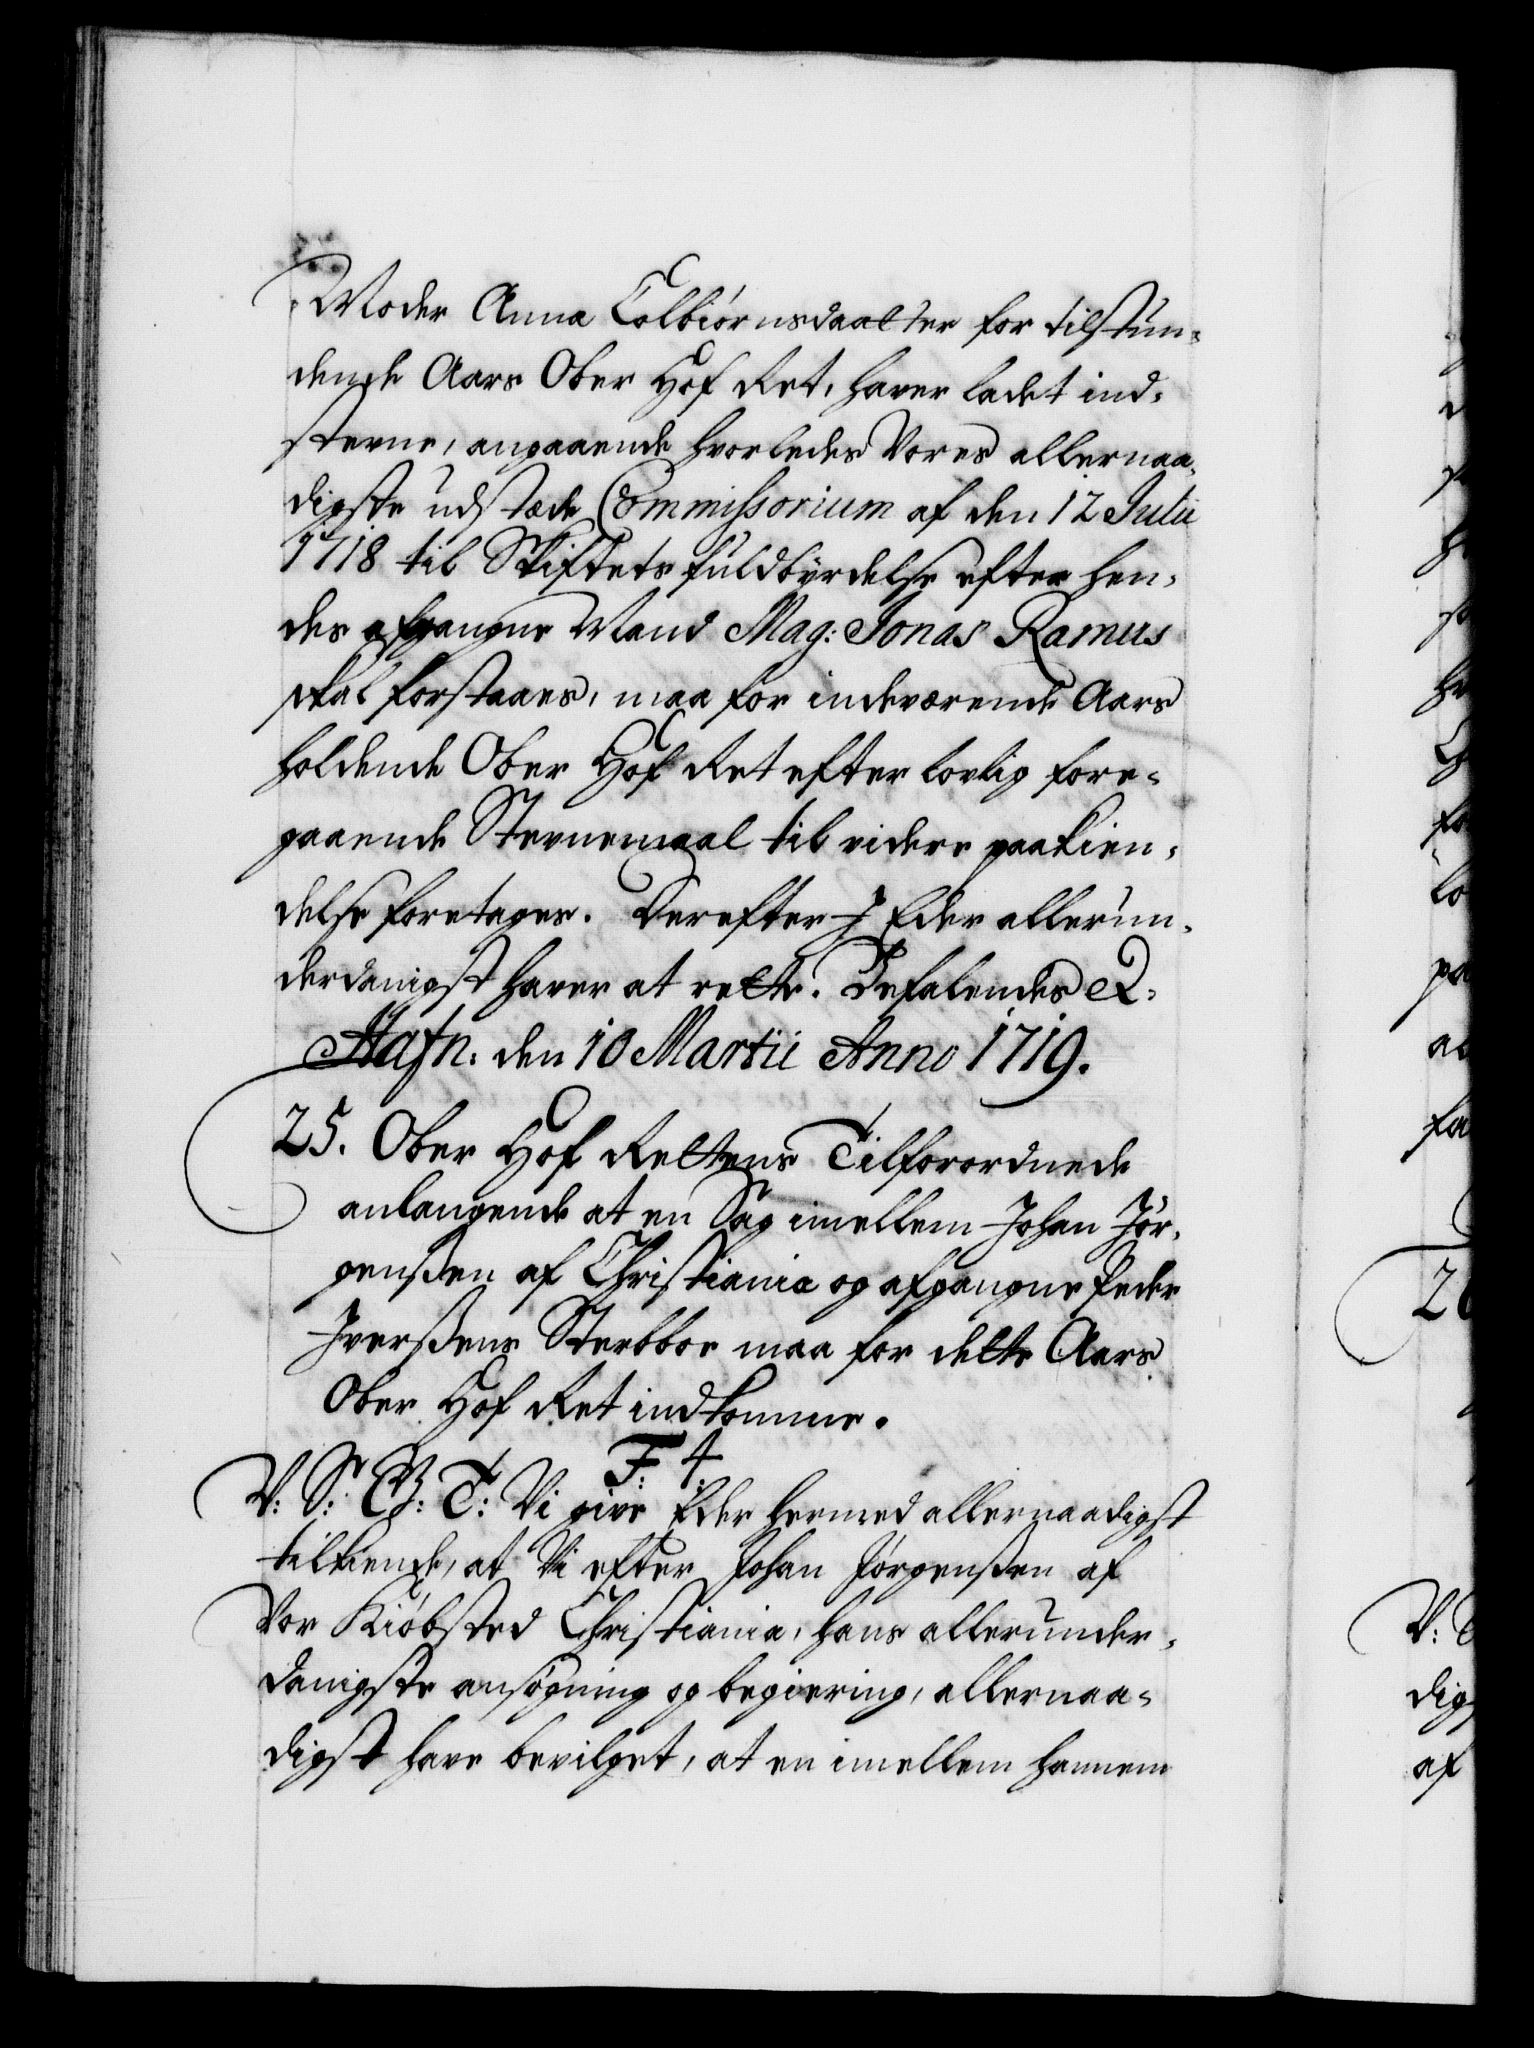 Moder Anna Colbiørnsdaatter for tilstun-
dende Aars Ober Hof Ret, haver ladet ind-
stevne, angaaende hvorledes Vores allernaa-
digste udstæde Commissorium af den 12 Julii
1718 til Skiftets fuldbyrdelse efter hen-
des afgangne Mand Mag: Jonas Ramus
skal forstaaes, maa for indeværende Aars
holdende Ober Hof Ret efter lovlig fore-
gaaende Stevnemaal til videre paakien-
delse foretages. Derefter I Eder allerun-
derdanigst haver at rette. Befalendes &.
Hafn. den 10 Martii Anno 1719.
25. Ober Hof Rettens Tilforordnede
anlangende at en Sag imellem Johan Jør-
genßen af Christiania og afgangne Peder
Iverßens Sterbboe maa for dette Aars
Ober Hof Ret indkomme.
F: 4.
V: S: G: T: Vi give Eder hermed allernaadigst
tilkiende, at Vi efter Johan Jørgenßen af
Vor Kiøbsted Christiania, hans allerunder-
danigste ansøgning og begiering, allernaa-
digst have bevilget, at en imellem hannem